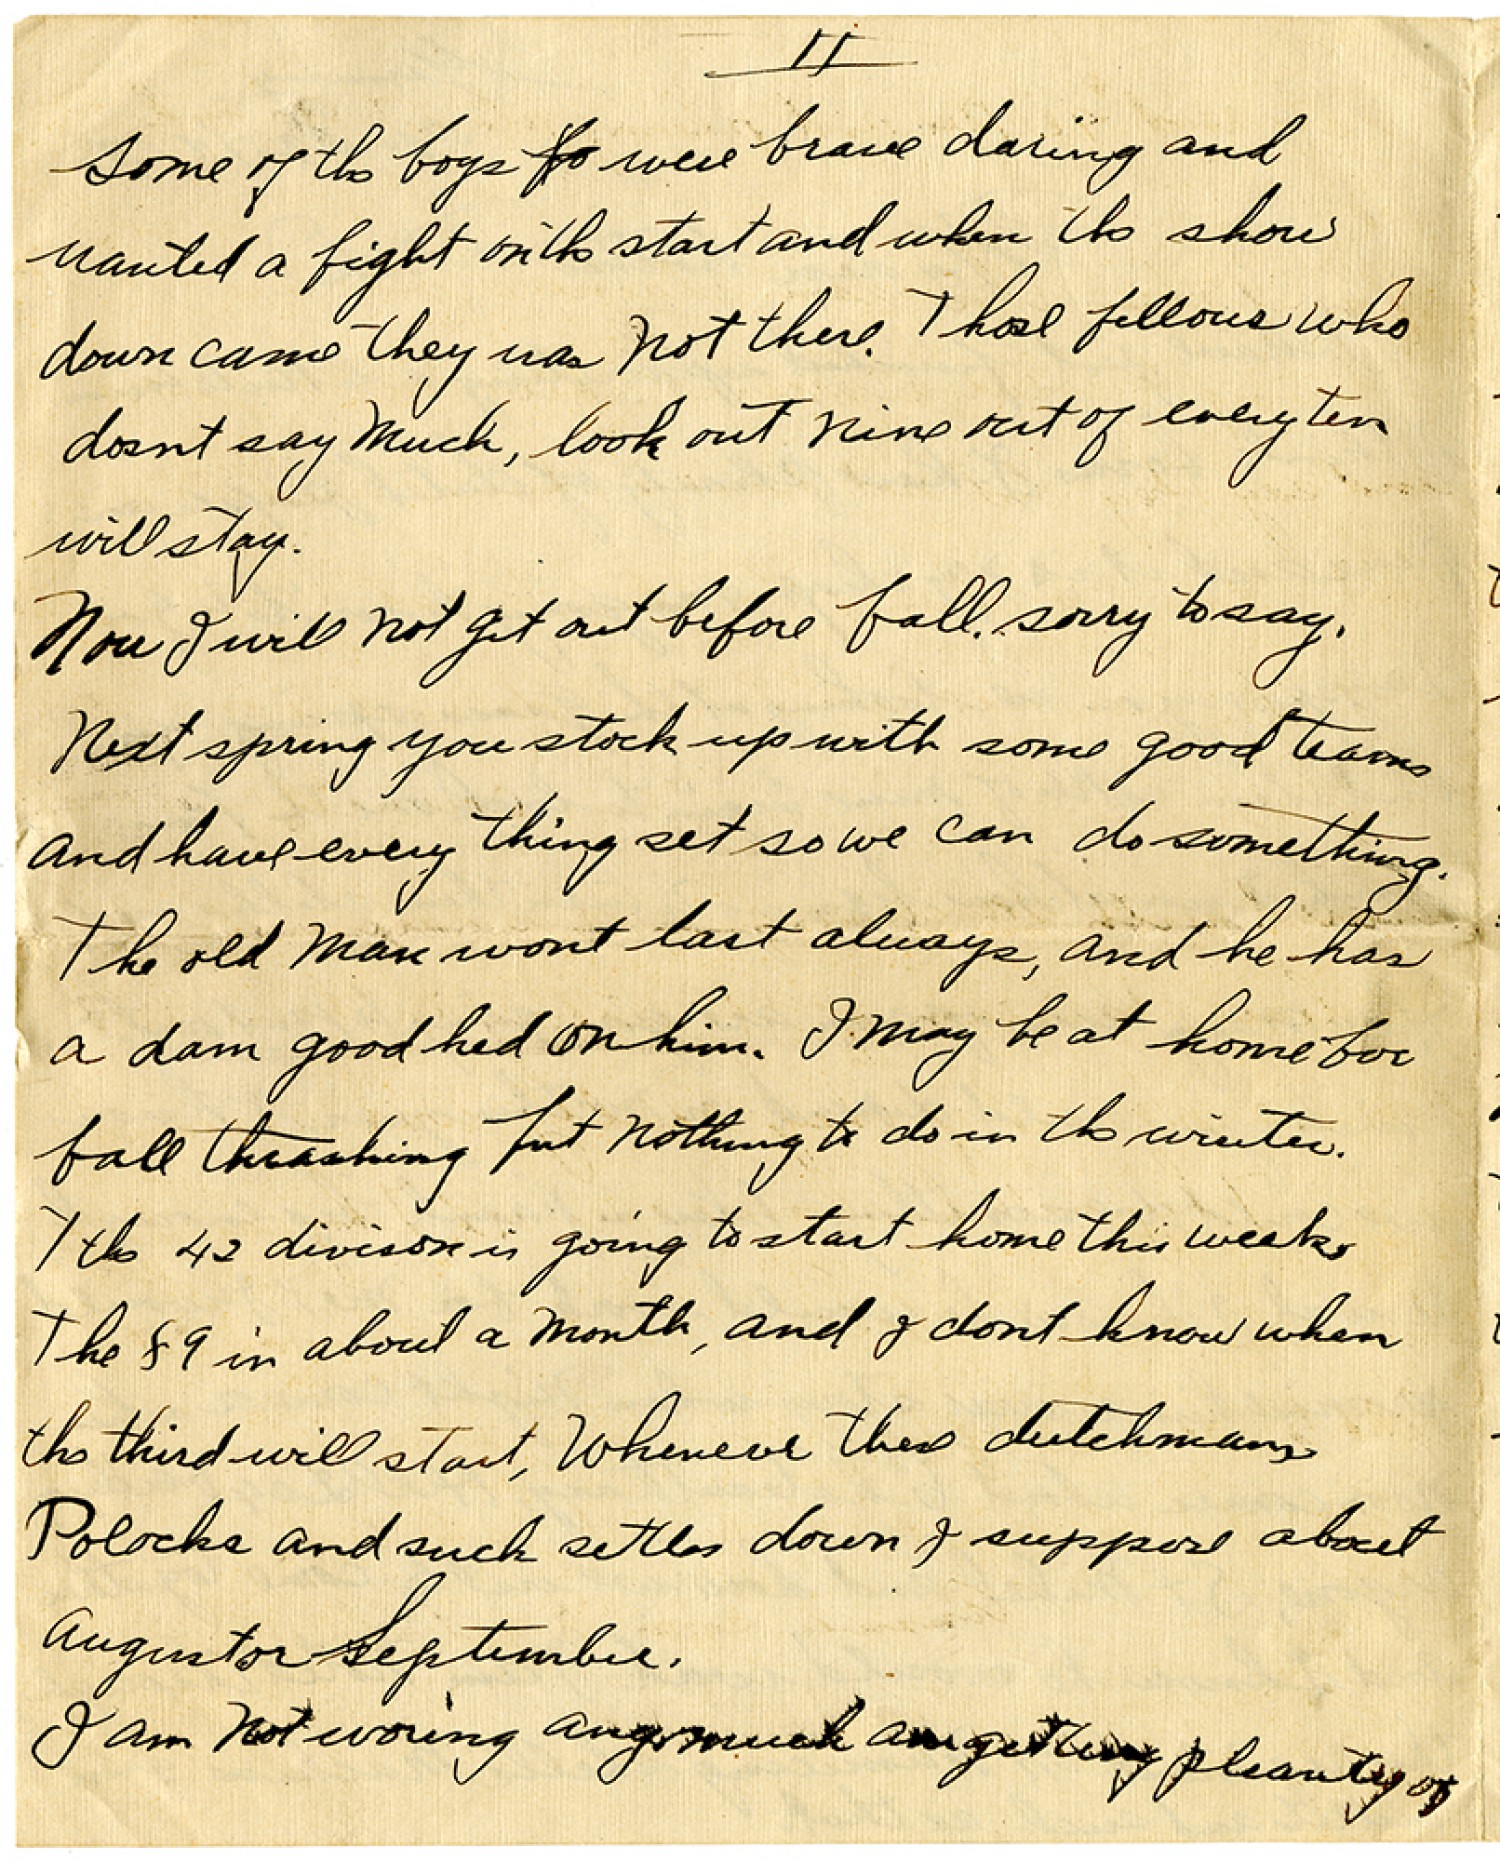 11
Some of the boys were brave daring and
wanted a fight on the start and when the show
down came they was not there. Those fellows who
dosnt say much, look out nine out of every ten
will stay.
Now I will not get out before fall. sorry to say.
Next spring you stock up with some good teams
and have every thing set so we can do something.
The old man wont last always, and he has
a dam good hed on him. I may be at home for
fall thrashing but nothing to do in the winter.
The 42 divison is going to start home this week.
The 89 in about a month, and I dont know when
the third will start, Whenever these dutchmans
Polocks and such settles down I suppose about
August or September.
I am not woring any much am getting pleanty of